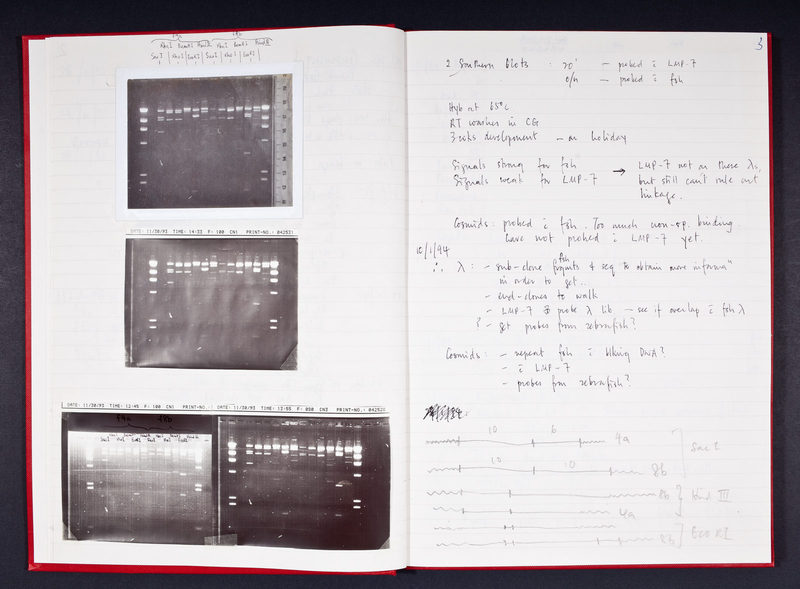 SacI | XhoI | EcoRI | SacI | XhoI | EcoRI |
DATE: 11/30/93 TIME: 14:33 F: 100 CN1 PRINT-NO.: 042531
DATE: 11/30/93 TIME: 13:45 F: 100 CN1 PRINT-NO.:
DATE: 11/30/93 TIME: 13:55 F: 090 CN3 PRINT-NO.: 042526
3
2 Southern Blots : 20' — probed c̄ LMP-7
o/n — probed c̄ fsh
Hyb at 65°C
RT washes in CG
3 wks development — on holiday
Signals strong for fsh
Signals weak for LMP-7
→ LMP-7 not on these λs,
but still can't rule out
linkage.
Cosmids: probed c̄ fsh. Too much non-sp. binding
have not probed c̄ LMP-7 yet.
10/1/94
∴ λ: - sub-clone fsh fragments & seq to obtain more informaⁿ
in order to get..
- end-clones to walk
- LMP-7 probe λ lib — see if overlap c̄ fsh λ
? - get probes from zebrafish?
Cosmids: - repeat fsh c̄ DNA?
- c̄ LMP-7
- probes from zebrafish?
10 6 4a
10 10 8b
Sac I
8b
4a
Hind III
8b
Eco RI